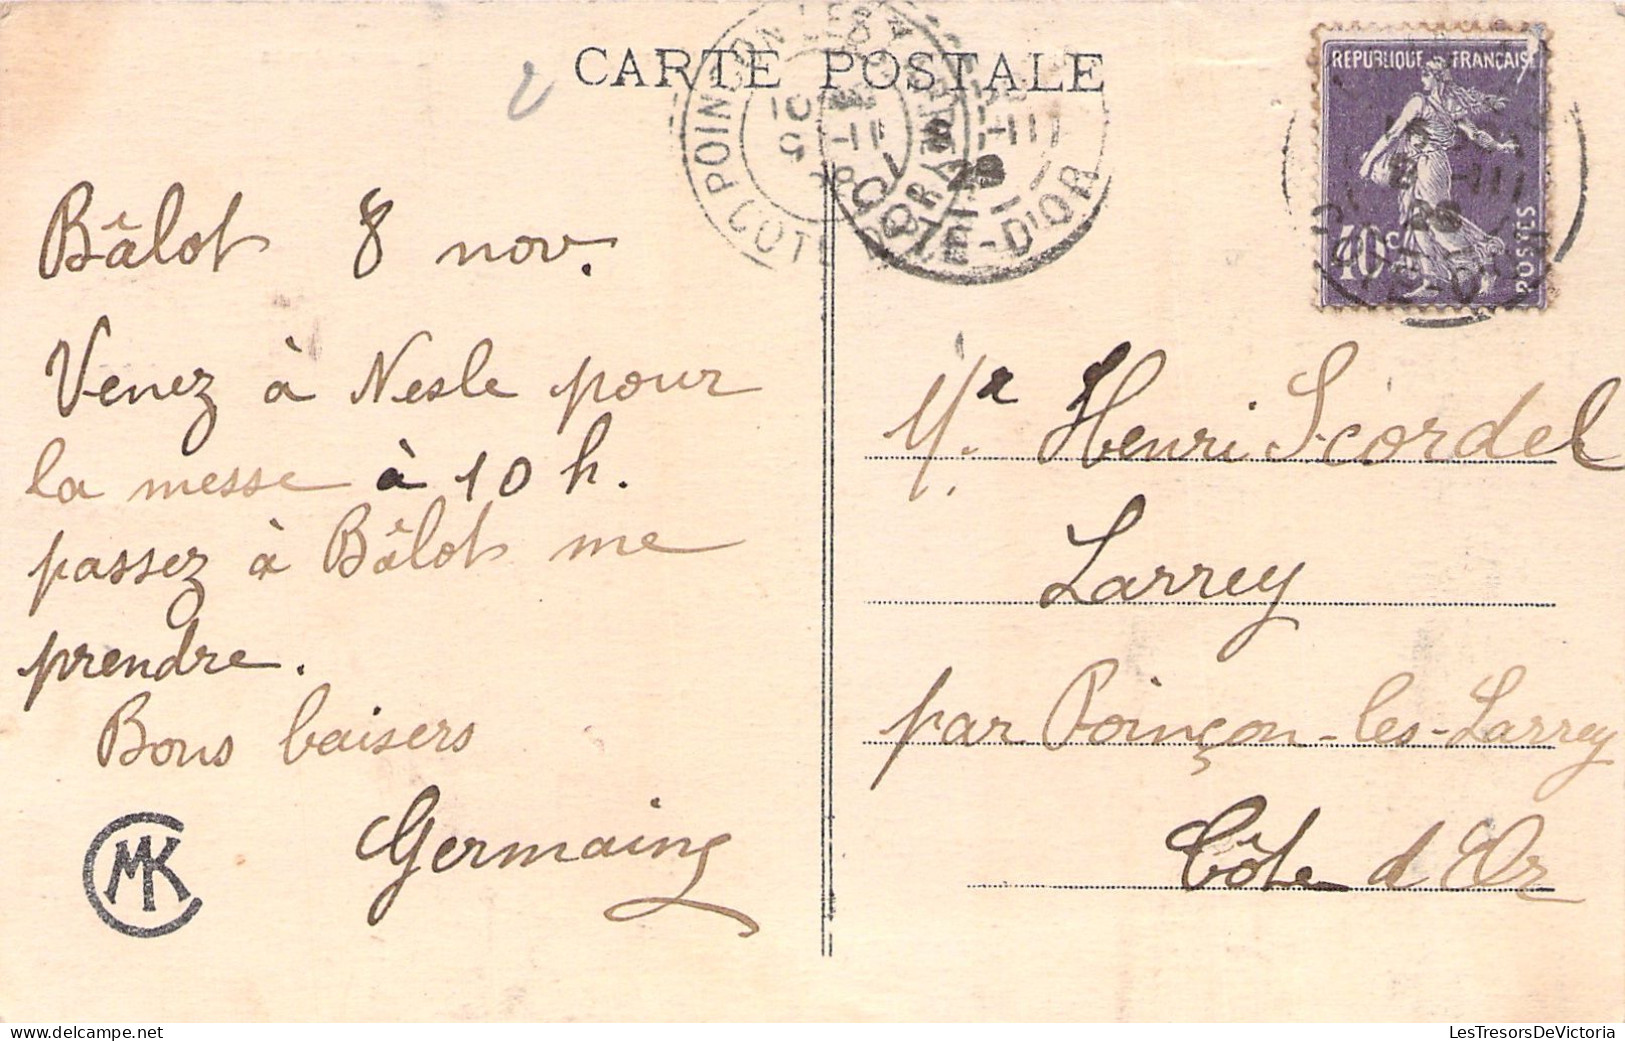 CARTE POSTALE
POINÇON LES
COTE
COTE-D'OR
REPUBLIQUE FRANÇAISE
40c
POSTES
Bâlot 8 nov.
Venez à Nesle pour
la messe à 10 h.
passez à Bâlot me
prendre.
Bons baisers
Germaine
MK
Mr. Henri Scordel
Larrey
par Poinçon-les-Larrey
Côte d'Or
LesTresorsDeVictoria.com